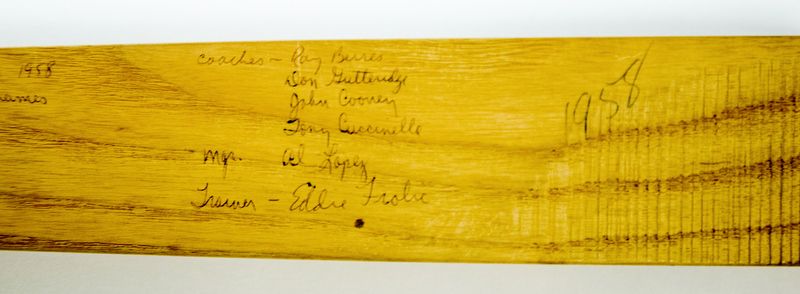 1958
coaches - Ray Berres
Don Gutteridge
John Cooney
Tony Cuccinello
mgr. Al Lopez
Trainer - Eddie Froelic
1958